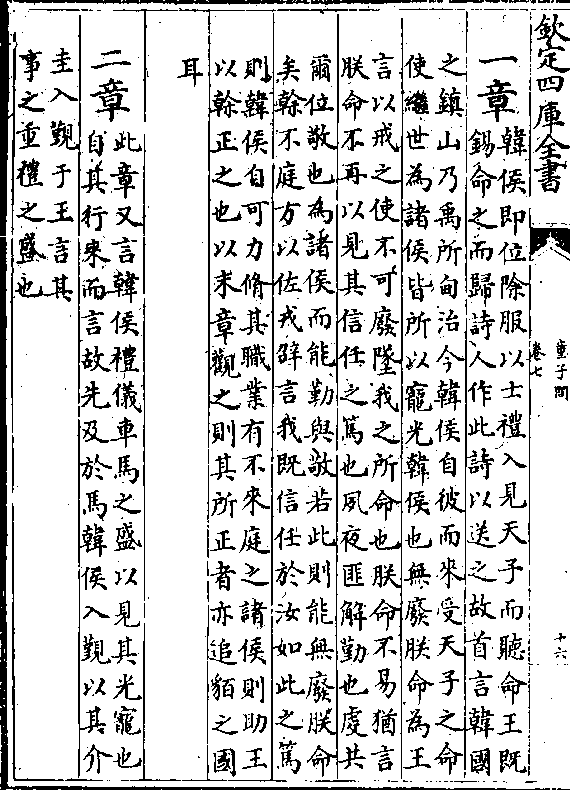 欽定四庫全書
童子問
卷七
十六
一章
韓侯即位除服以士禮入見天子而聽命王既
錫命之而歸詩人作此詩以送之故首言韓國
之鎮山乃禹所甸治今韓侯自彼而來受天子之命
使繼世為諸侯皆所以寵光韓侯也無廢朕命為王
言以戒之使不可廢墜我之所命也朕命不易猶言
朕命不再以見其信任之篤也夙夜匪解勤也虔共
爾位敬也為諸侯而能勤與敬若此則能無廢朕命
矣榦不庭方以佐戎辟言我既信任於汝如此之篤
則韓侯自可力脩其職業有不來庭之諸侯則助王
以榦正之也以末章觀之則其所正者亦追貊之國
耳
二章
此章又言韓侯禮儀車馬之盛以見其光寵也
自其行來而言故先及於馬韓侯入覲以其介
圭入覲于王言其
事之重禮之盛也